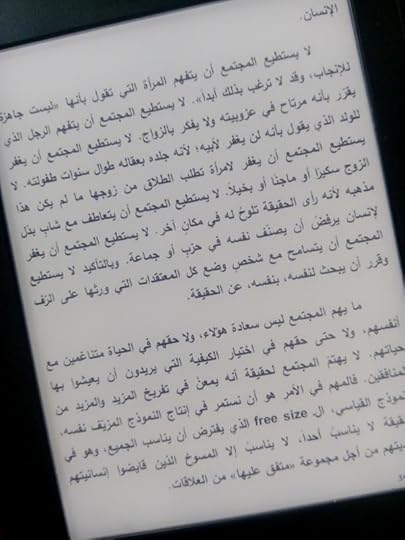 الإنسان.
لا يستطيع المجتمع أن يتفهم المرأة التي تقول بأنها «ليست جاهزة
للإنجاب، وقد لا ترغب بذلك أبداً». لا يستطيع المجتمع أن يتفهم الرجل الذي
يقرّر بأنه مرتاح في عزوبيته ولا يفكر بالزواج. لا يستطيع المجتمع أن يغفر
للولد الذي يقول بأنه لن يغفر لأبيه؛ لأنه جلده بعقاله طوال سنوات طفولته. لا
يستطيع المجتمع أن يغفر لامرأة تطلب الطلاق من زوجها ما لم يكن هذا
الزوج سكيرًا أو ماجنًا أو بخيلاً. لا يستطيع المجتمع أن يتعاطف مع شاب بدّل
مذهبه لأنه رأى الحقيقة تلوحُ له في مكانٍ آخر. لا يستطيع المجتمع أن يغفر
لإنسان يرفضُ أن يصنّف نفسه في حزب أو جماعة. وبالتأكيد لا يستطيع
المجتمع أن يتسامح مع شخصٍ وضع كل المعتقدات التي ورثها على الرّف
وقرر أن يبحث لنفسه، بنفسه، عن الحقيقة.
ما يهم المجتمع ليس سعادة هؤلاء، ولا حقهم في الحياة متناغمين مع
أنفسهم، ولا حتى حقهم في اختيار الكيفية التي يريدون أن يعيشوا بها
حياتهم. لا يهتمّ المجتمع لحقيقة أنه يمعنُ في تفريخ المزيد والمزيد من
المنافقين. فالمهم في الأمر هو أن نستمر في إنتاج النموذج المزيّف نفسه.
نموذج القياسي، الـ free size الذي يفترض أن يناسب الجميع، وهو في
حقيقة لا يناسبُ أحداً، لا يناسبُ إلا المسوخ الذين قايضوا إنسانيتهم
من أجل مجموعة «متفق عليها» من العلاقات.